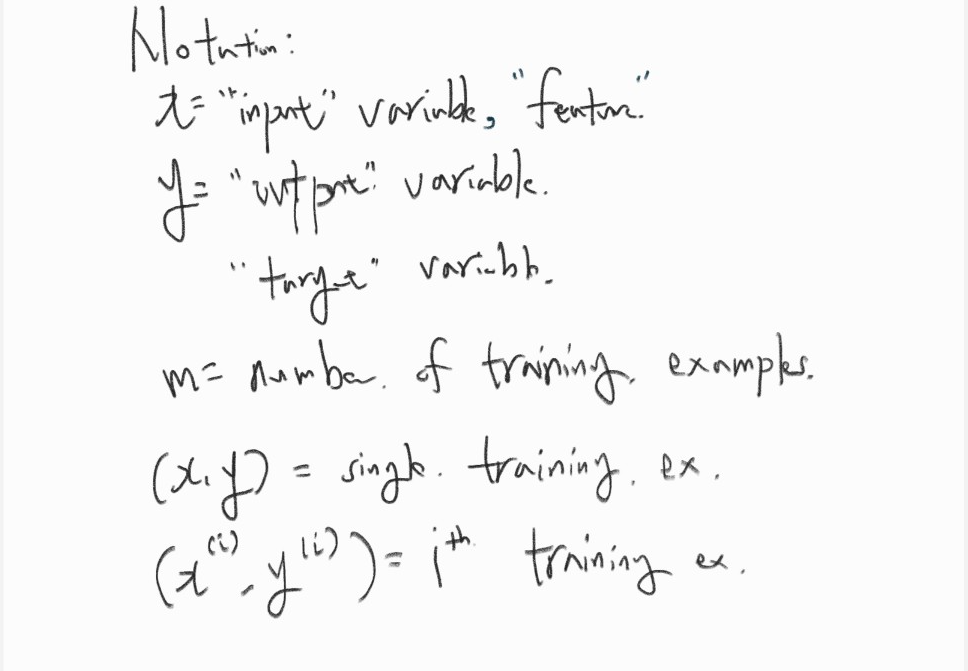 Notation:
x = "input" variable, "feature"
y = "output" variable.
"target" variable.
m = number of training examples.
(x, y) = single training ex.
(x^(i), y^(i)) = i^th training ex.